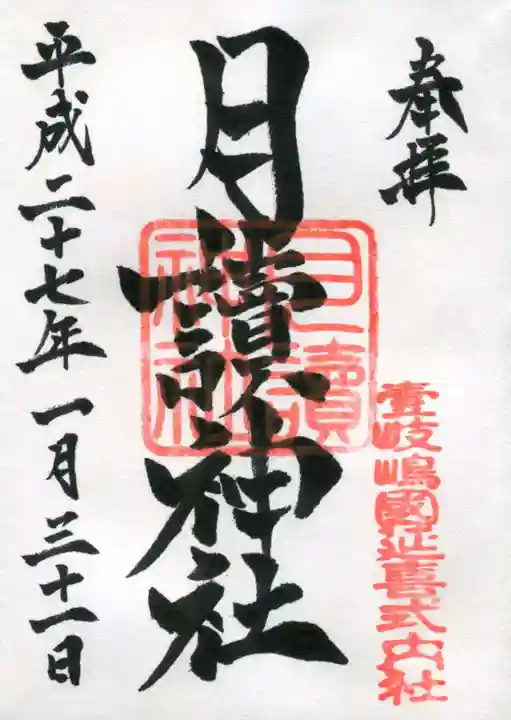 奉拝
壹岐嶋國延喜式内社
月讀神社
月讀神社
平成二十七年一月三十一日